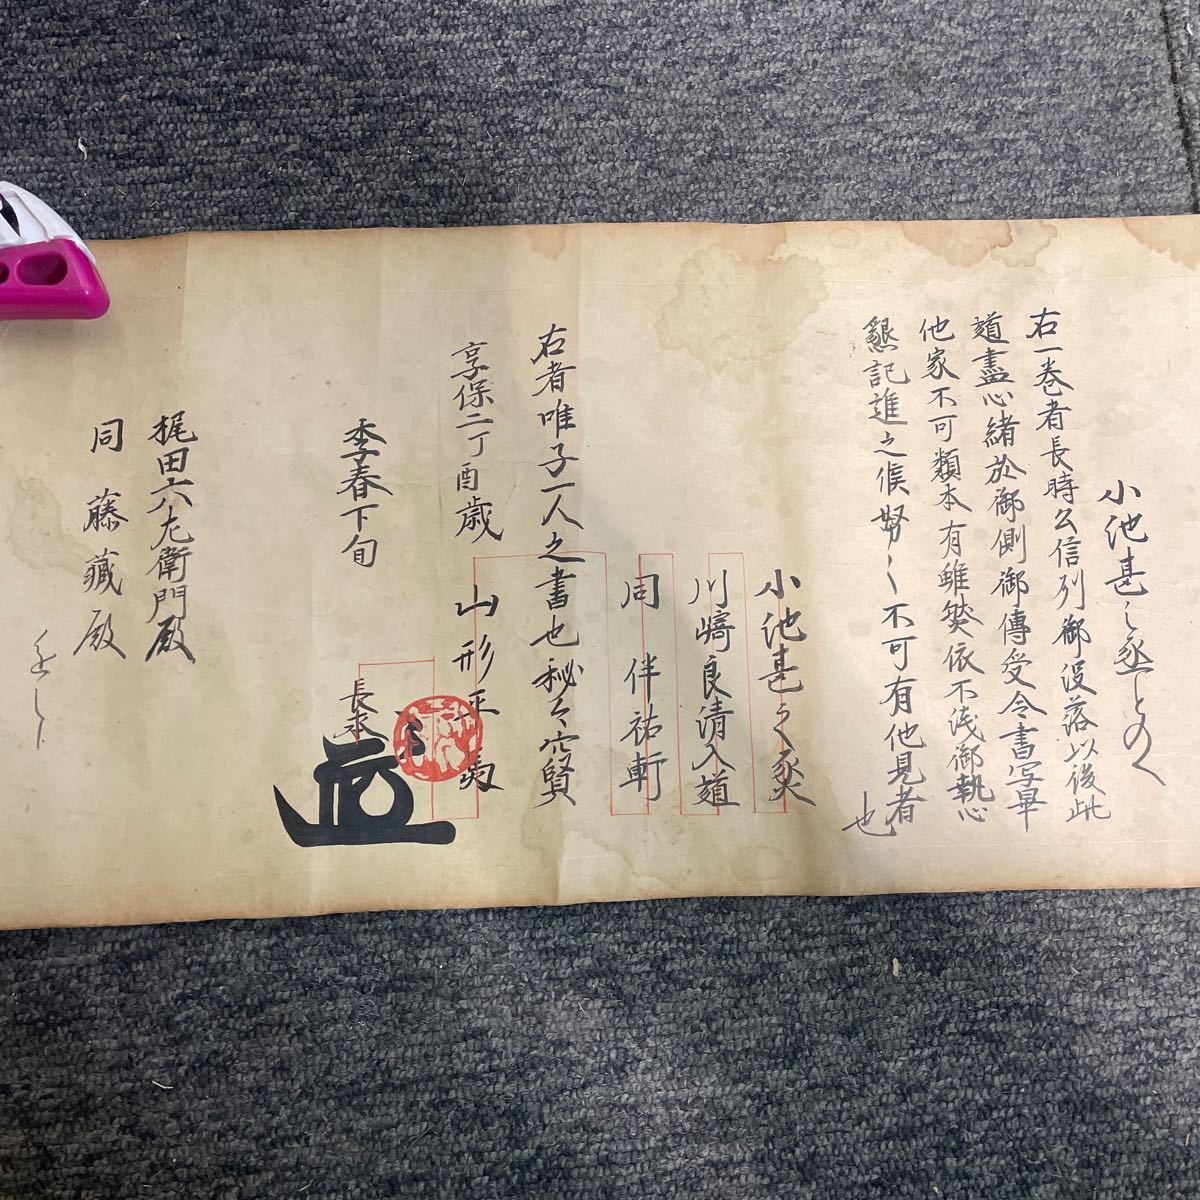 小池甚之丞とのへ
右一巻者長時公信列御没落以後此
道盡心緒於御側御傳受今書写畢
他家不可類本有雖然依不浅御執心
懇記進之候努〱不可有他見者
也
小池甚之丞
川﨑良清入道
同 伴祐軒
右者唯子一人之書也秘々穴賢
享保二丁酉歳 山形平
季春下旬
長
梶田六左衛門殿
同 藤蔵殿